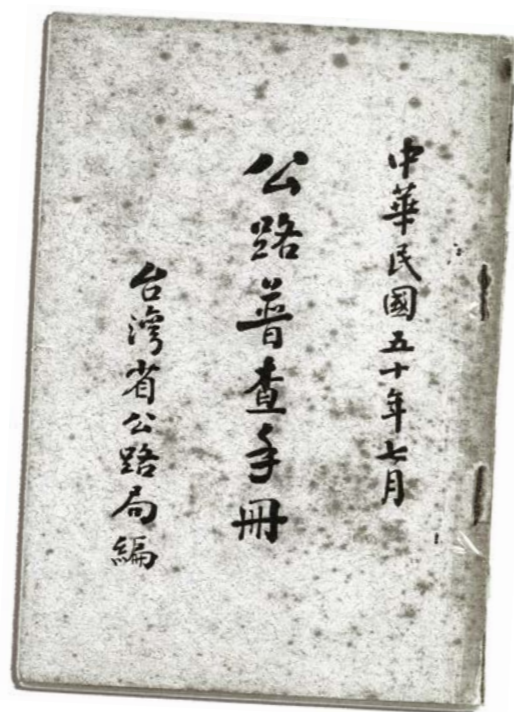 中華民國五十年七月
公路普查手冊
台灣省公路局編